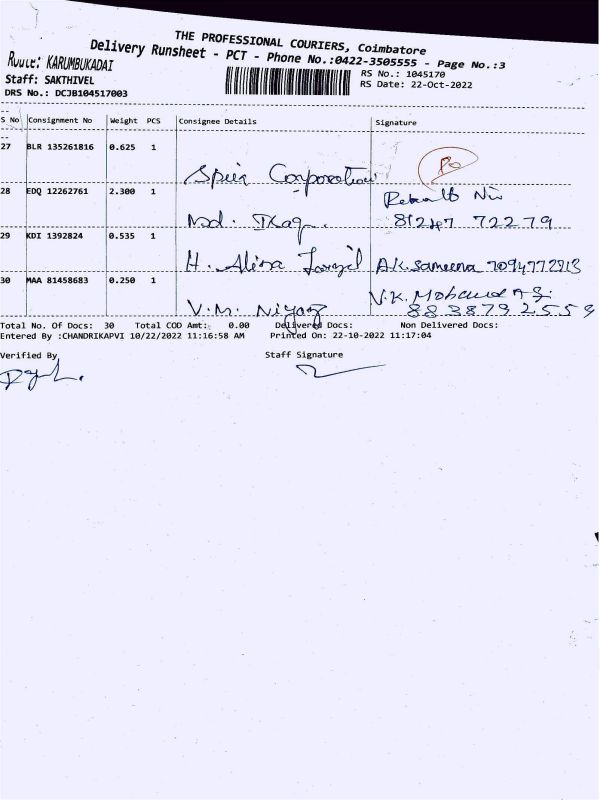 THE PROFESSIONAL COURIERS, Coimbatore
Delivery Runsheet - PCT - Phone No.:0422-3505555 - Page No.:3
Route: KARUMBUKADAI
RS No.: 1045170
Staff: SAKTHIVEL
RS Date: 22-Oct-2022
DRS No.: DCJB104517003
S No Consignment No Weight PCS Consignee Details Signature
27 BLR 135261816 0.625 1
Corporation
28 EDQ 12262761 2.300 1
Md.
81247 72279
29 KDI 1392824 0.535 1
H. A.K. Sameena 7094772913
30 MAA 81458683 0.250 1
V.K.
V.M. Niyaz 8838792559
Total No. Of Docs: 30 Total COD Amt: 0.00 Delivered Docs: Non Delivered Docs:
Entered By :CHANDRIKAPVI 10/22/2022 11:16:58 AM Printed On: 22-10-2022 11:17:04
Verified By Staff Signature